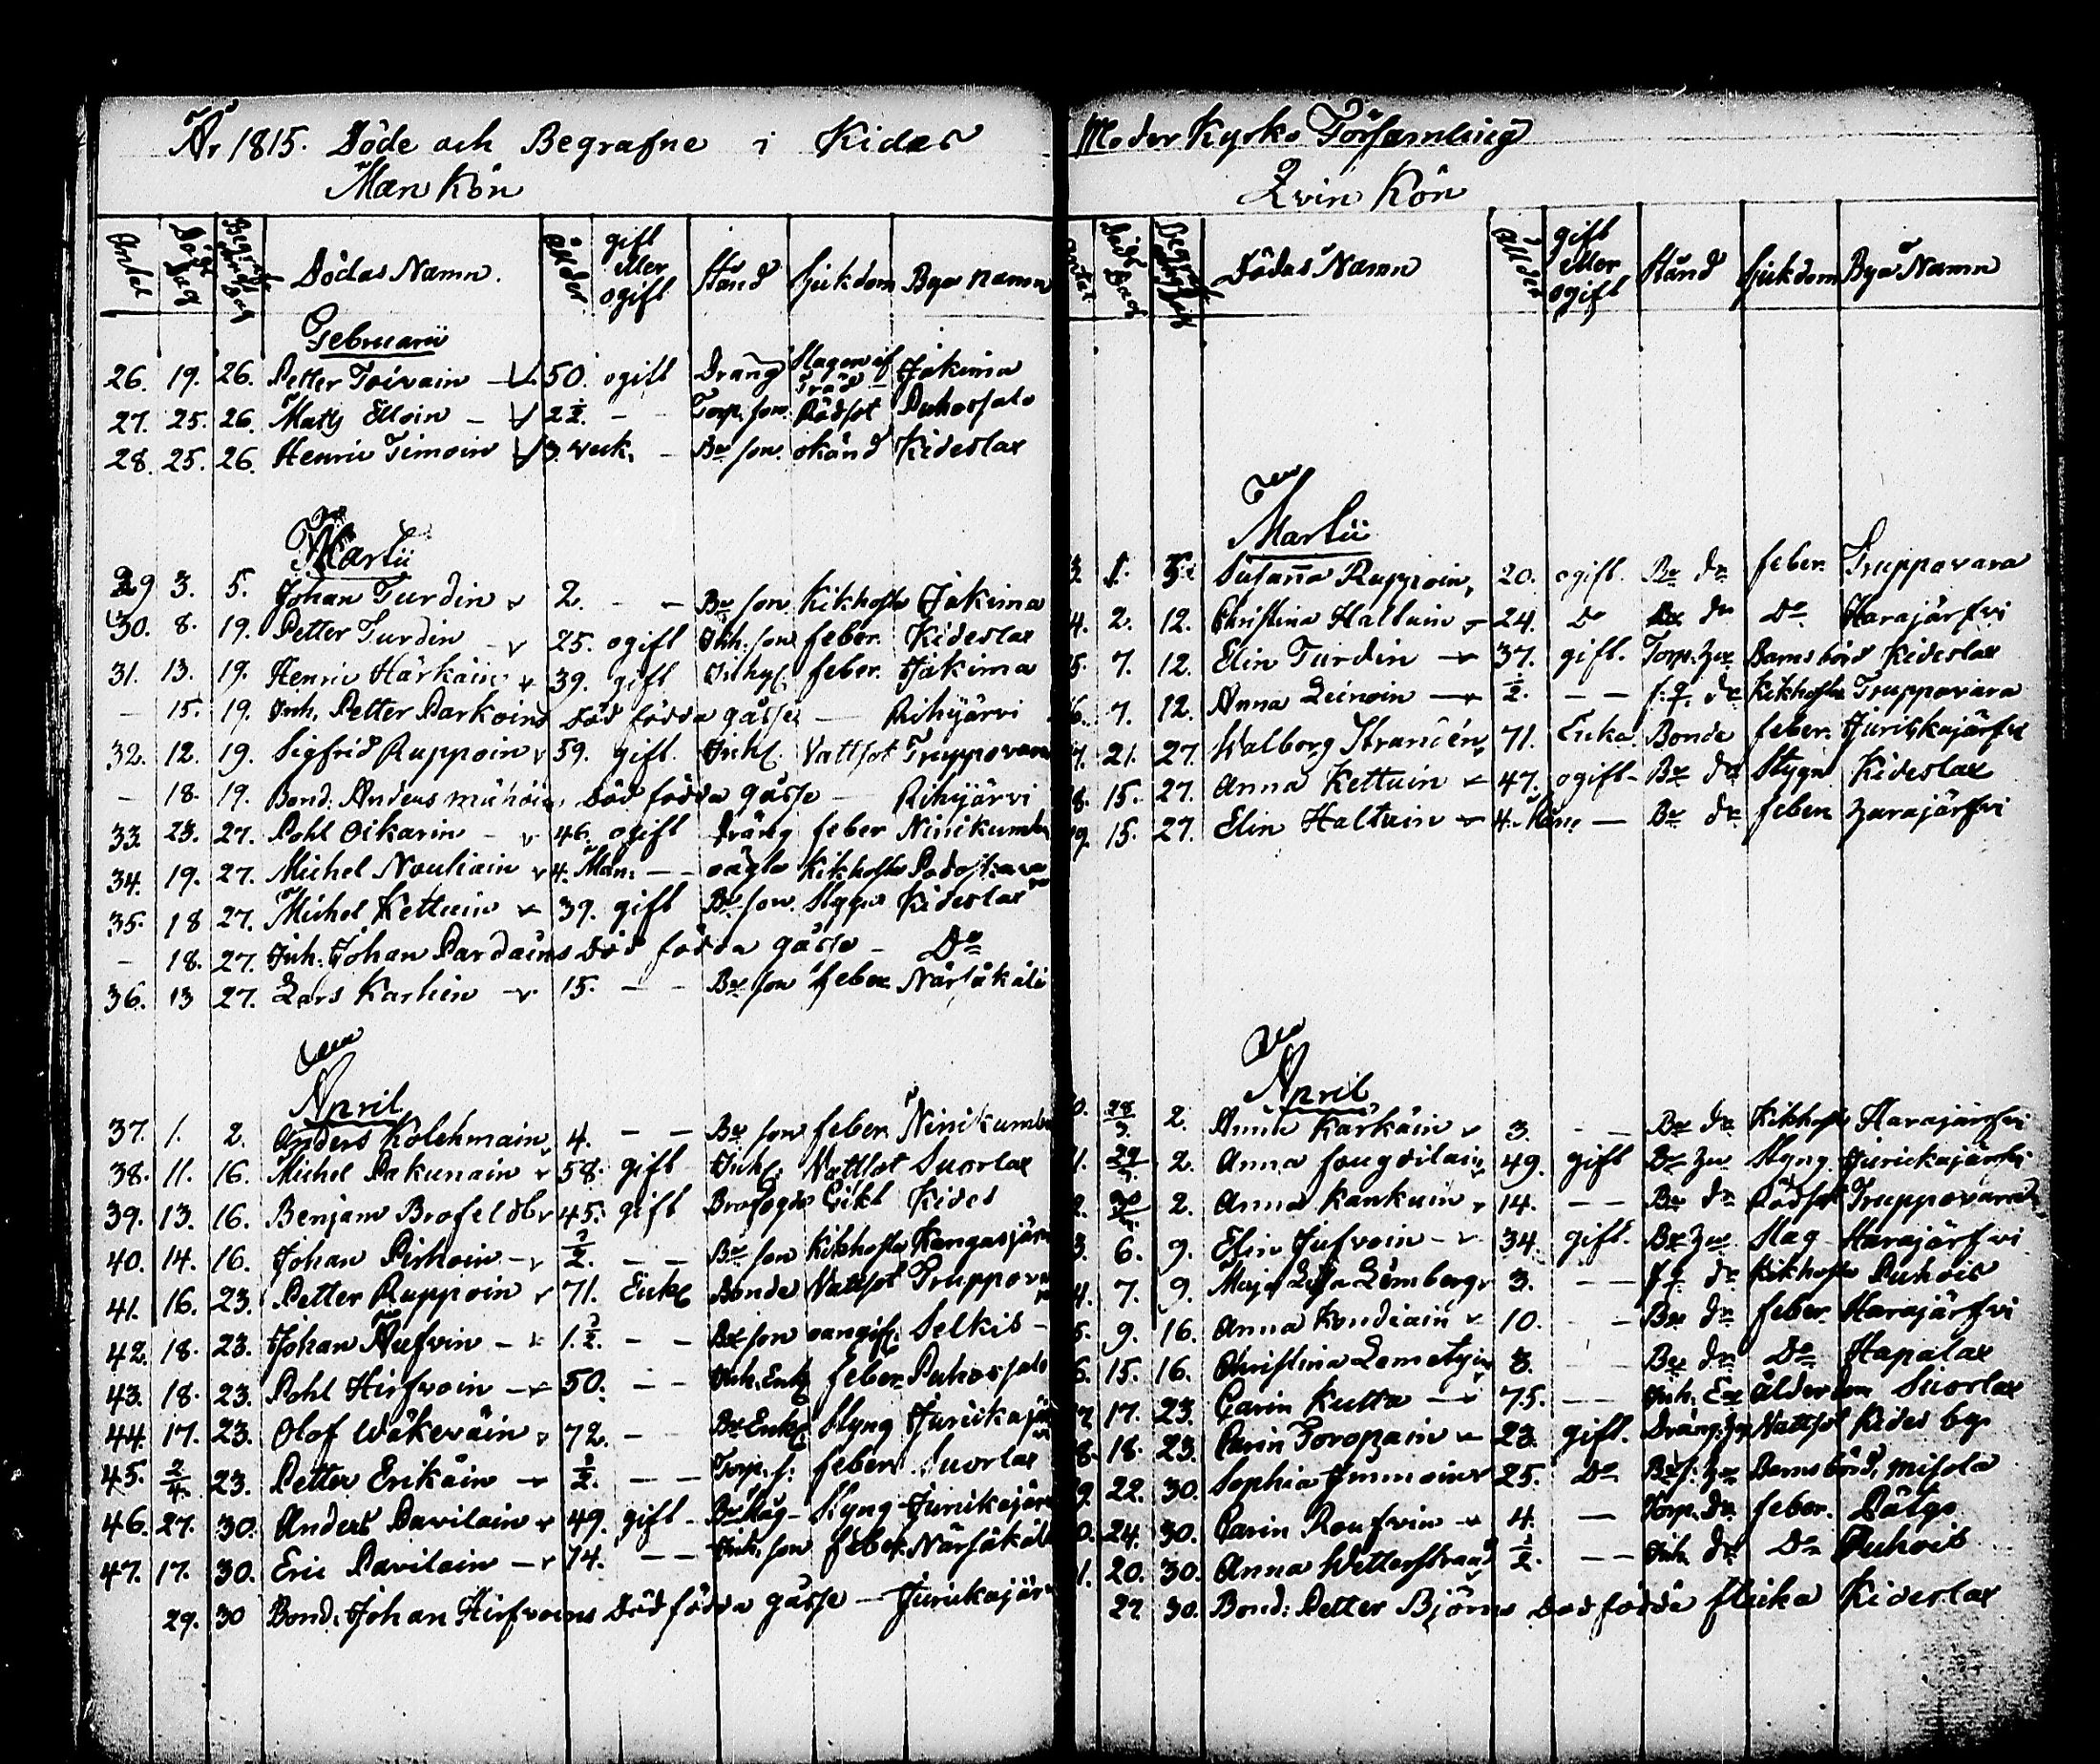 År 1815. Döde och Begrafne i Kides
Man Kön
Antal Döds Dag Begrafn. Dag Dödas Namn. Ålder gift eller ogift Stånd Sjukdom Bya namn
Februarii
26. 19. 26. Petter Toivain 50. ogift Dräng Slagen af Träd Jakima
27. 25. 26. Mats Elloin - 2 1/2. - Torp. son. Rödsot Puhossalo
28. 25. 26. Henric Timoin 3. veck. - Br son. okänd Kideslax
Martii
29 3. 5. Johan Turdin 2. - - Br son Kikhosta Jakima
30. 8. 19. Petter Turdin 25. ogift Inh. son feber. Kideslax
31. 13. 19. Henric Härkäin 39. gift Inhys. feber. Jakima
- 15. 19. Inh. Petter Parkoins död födda gåsse - Rihijärvi
32. 12. 19. Sigfrid Ruppoin 59. gift. Inh. Vattsot Truppovara
- 18. 19. Bond. Anders död födda gåsse - Rihijärvi
33. 23. 27. Pohl Oikarin - 46. ogift Dräng feber Ninikumbu
34. 19. 27. Michel Nouliain 4. Mån. - - oägta Kikhosta
35. 18 27. Michel Kettuin 39. gift Br son. Styng Kideslax
- 18. 27. Inh. Johan Pardains död födda gåsse - Do
36. 13 27. Lars Karhin 15. - - Br son feber Närsäkälä
April
37. 1. 2. Anders Kolehmain 4. - - Br son feber Ninikumbu
38. 11. 16. Michel Pakunain 58. gift Inh. Vattsot Suorlax
39. 13. 16. Benjam Brofeldt 45. gift Brofogde Gikt Kides
40. 14. 16. Johan Pirhoin - 1/2. - - Br son Kikhosta Kangasjärv
41. 16. 23. Petter Ruppoin 71. Enkl Bonde Vattsot Truppovara
42. 18. 23. Johan Aufvin - 1. 1/2. - - Br son oangif. Selkis -
43. 18. 23. Pohl Hirfvoin - 50. - - Inh. Enkl feber Puhossalo
44. 17. 23. Olof Wäkeväin 72. - Br Enkl Styng Jurickajärv
45. 2/4. 23. Petter Erikäin - 1/2. - - Torp. s: feber Suorlax
46. 27. 30. Anders Pavilain 49. gift - Br Måg - Styng Jurickajärv
47. 17. 30. Eric Pavilain - 74. - - Inh. son feber. Närsäkälä
29. 30 Bond. Johan Hirfvoins död födda gåsse - Jurickajärv
Moder Kyrko Församling
Qvin Kön
Antal Döds Dag Begrafn. Dag Dödas Namn Ålder gift eller ogift Stånd Sjukdom Bya Namn
Martii
3. 1. 5. Susanna Ruppoin, 20. ogift. Br dr feber. Truppovara
4. 2. 12. Christina Haltuin 24. Do Br dr Do Harajärfvi
5. 7. 12. Elin Turdin 37. gift. Torp. hu Barnsbörd Kideslax
6. 7. 12. Anna Leinoin 1/2. - - s: q. dr Kikhosta Truppovara
7. 21. 27. Walborg Strandén 71. Enka. Bonde feber. Jurickajärfvi
8. 15. 27. Anna Kettuin 47. ogift - Br dr Styng Kideslax
9. 15. 27. Elin Haltuin 4. Mån. - Br dr feber Harajärfvi
April
0. 28/3. 2. Anna Karkäin 3. - - Br dr Kikhosta Harajärfvi
1. 29/3. 2. Anna 49. gift Br hu Styng Jurickajärfvi
2. 30/3. 2. Anna Kankuin 14. - - Br dr Rödsot Truppovara
3. 6. 9. Elin Jufvoin - 34. gift. Br hu Slag Harajärfvi
4. 7. 9. Maja Lisa Lömberg 3. - - s: q. dr Kikhosta Puhois
5. 9. 16. Anna Kondiain 10. - Br dr feber. Harajärfvi
6. 15. 16. Christina 3. - - Br dr Do Hapalax
7. 17. 23. Carin Kutta - 75. - - Inh. En Ålderdom Suorlax
8. 18. 23. Carin Toropain 23. gift. Dräng. hu Vattsot Kides by
9. 22. 30. Sophia Immoin 25. Do Br s: hu Barnsbörd, Misola
0. 24. 30. Carin Roufvin 4. - Torp. dr feber. Pätgo
1. 20. 30. Anna Wetterstrand 1/2. - - Inh dr Do Puhois
27. 30. Bond: Petter Björns död födda flicka Kideslax